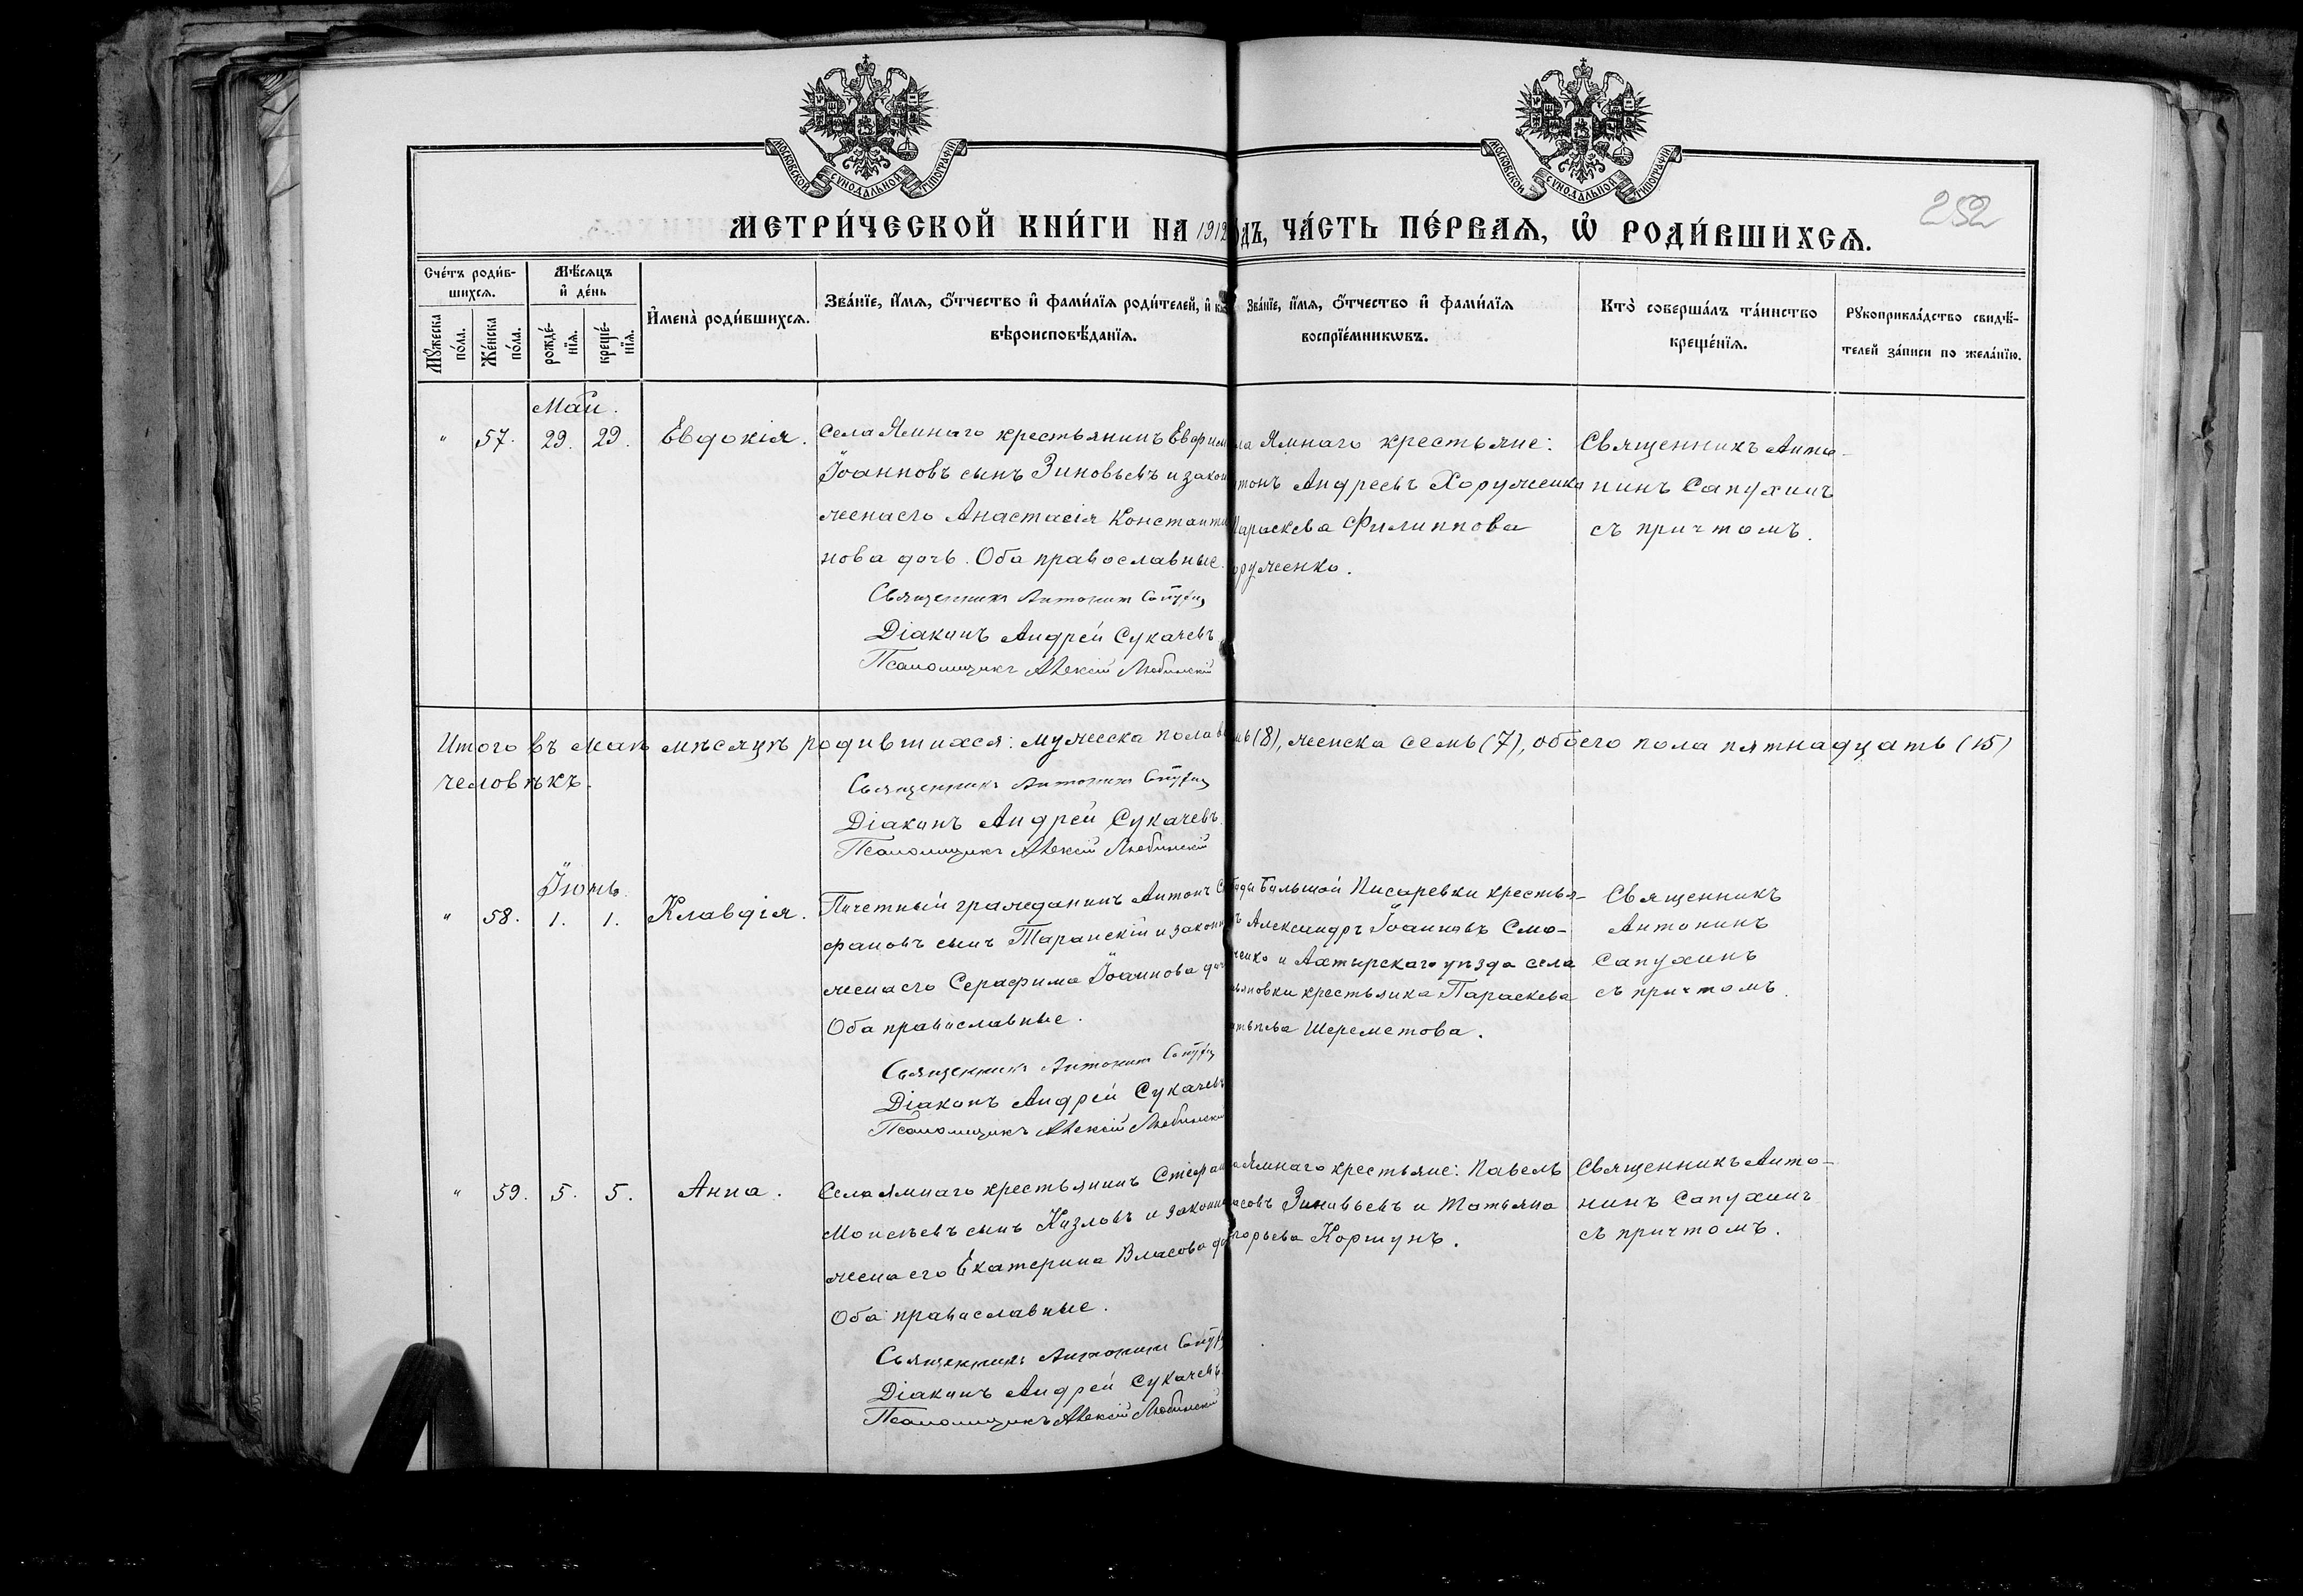 МОСКОВСКОЙ СУНОДАЛЬНОЙ ТИПОГРАФІИ
МОСКОВСКОЙ СУНОДАЛЬНОЙ ТИПОГРАФІИ
252
МЕТРИ́ЧЕСКОЙ КНИ́ГИ НА 1912 ДЪ, ЧА́СТЬ ПЕ́РВАѦ, Ѡ҆ РОДИ́ВШИХСѦ.
Сче́тъ роди́в-
шихсѧ.
Мꙋ́жеска по́ла.
Же́нска по́ла.
Мѣ́сѧцъ
и҆ де́нь
рожде́-нїѧ.
креще́-нїѧ.
И҆мена̀ роди́вшихсѧ.
Зва́нїе, и҆́мѧ, ѻ҆́тчество и҆ фами́лїѧ роди́телей, и҆
вѣроисповѣ́данїѧ.
Зва́нїе, и҆́мѧ, ѻ҆́тчество и҆ фами́лїѧ
воспрїе́мникѡвъ.
Кто̀ соверша́лъ та́инство
креще́нїѧ.
Рꙋкоприкла́дство свидѣ́-
телей за́писи по жела́нїю.
Май.
" 57. 29. 29. Евдокія.
Села Ямнаго крестьянинъ Ефрим
Іоанновъ сынъ Зиновьевъ и закон
жена его Анастасія Константи
нова дочь. Оба православные.
Священникъ Антонинъ Сапухин
Діаконъ Андрей Сукачевъ
Псаломщикъ Алексій Любинскій
ла Ямнаго крестьяне:
тонъ Андреевъ Хоруженко
Параскева Филиппова
оруженко.
Священникъ Анто-
нинъ Сапухинъ
съ причтомъ.
Итого въ маѣ мѣсяцѣ родившихся: мужеска пола во мь (8), женска семь (7), обоего пола пятнадцать (15)
человѣкъ.
Священникъ Антонинъ Сапухин
Діаконъ Андрей Сукачевъ.
Псаломщикъ Алексій Любинскій
Іюнь
" 58. 1. 1. Клавдія.
Почетный гражданинъ Антонъ
фановъ сынъ Таранскій и законн
жена его Серафима Іоаннова доч
Оба православные.
Священникъ Антонинъ Сапухин
Діаконъ Андрей Сукачевъ
Псаломщикъ Алексій Любинскій
оды Большой Писаревки крестья-
ъ Александръ Іоанновъ Смо-
ченко и Ахтырскаго уѣзда села
ьяновки крестьянка Параскева
Шереметова.
Священникъ
Антонинъ
Сапухинъ
съ причтомъ.
" 59. 5. 5. Анна.
Села Ямнаго крестьянинъ Стефан
Моисеевъ сынъ Козловъ и законн
жена его Екатерина Власова до
Оба православные.
Священникъ Антонинъ Сапух
Діаконъ Андрей Сукачевъ.
Псаломщикъ Алексій Любинскій
а Ямнаго крестьяне: Павелъ
асовъ Зиновьевъ и Татьяна
горьева Коршунъ.
Священникъ Анто-
нинъ Сапухинъ
съ причтомъ.